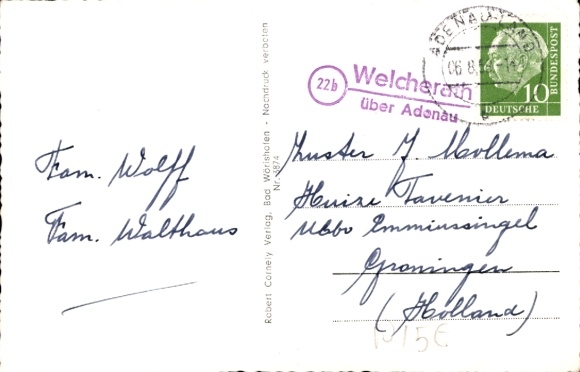 Fam. Wolff
Fam. Walthaus
Robert Cornely Verlag, Bad Wörishofen · Nachdruck verboten
Nr. 3874
22b Welcherath
über Adenau
ADENAU LAND
06.8.
10
DEUTSCHE
BUNDESPOST
Zuster J. Mollema
Huize Tavenier
Ubbo Emmiussingel
Groningen
(Holland)